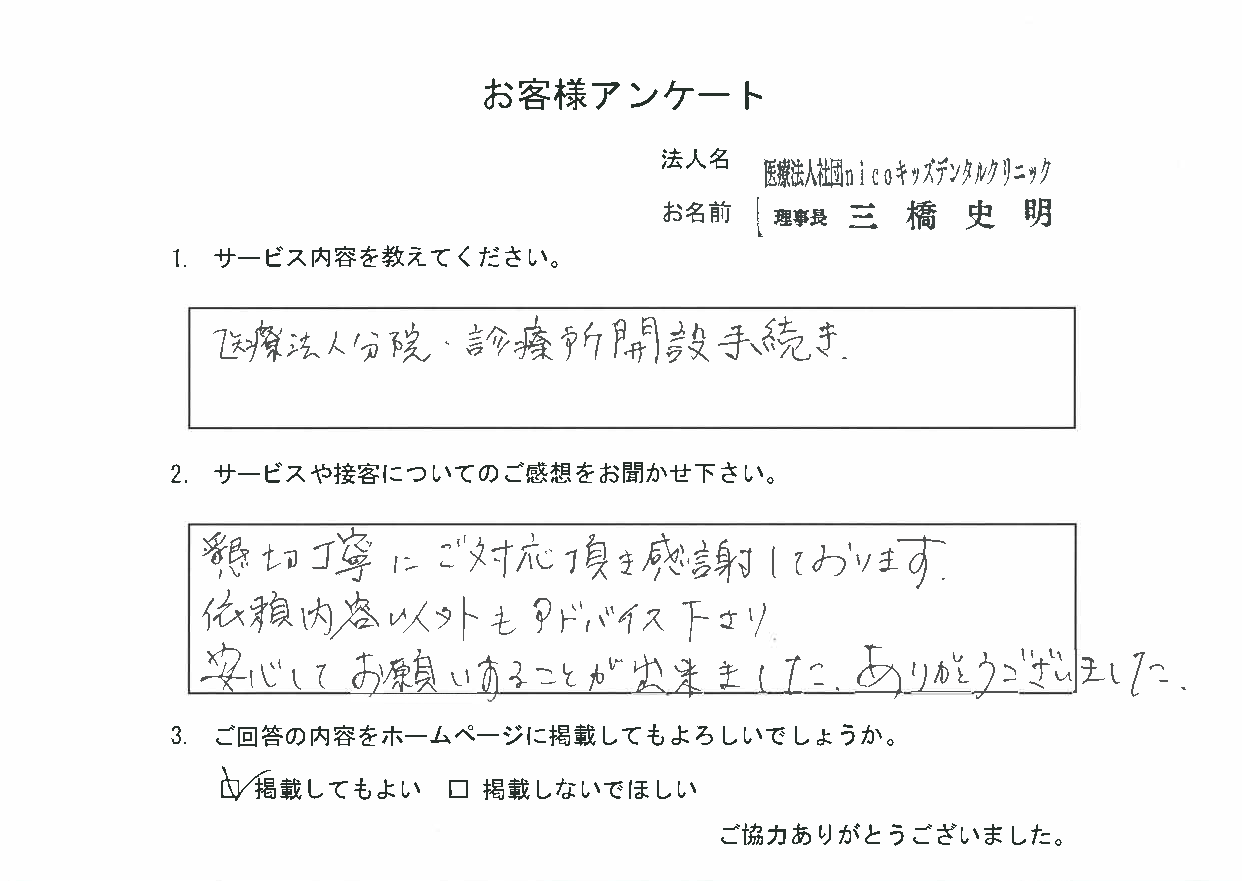 お客様アンケート
法人名 医療法人社団nicoキッズデンタルクリニック
お名前 理事長 三橋史明
1. サービス内容を教えてください。
医療法人分院・診療所開設手続き.
2. サービスや接客についてのご感想をお聞かせ下さい。
懇切丁寧にご対応頂き感謝しております.
依頼内容以外もアドバイス下さり
安心してお願いすることが出来ました.ありがとうございました.
3. ご回答の内容をホームページに掲載してもよろしいでしょうか。
☑掲載してもよい □ 掲載しないでほしい
ご協力ありがとうございました。